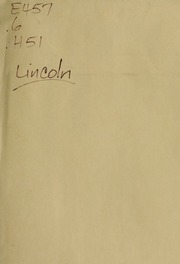 E457
.6
.451
Lincoln